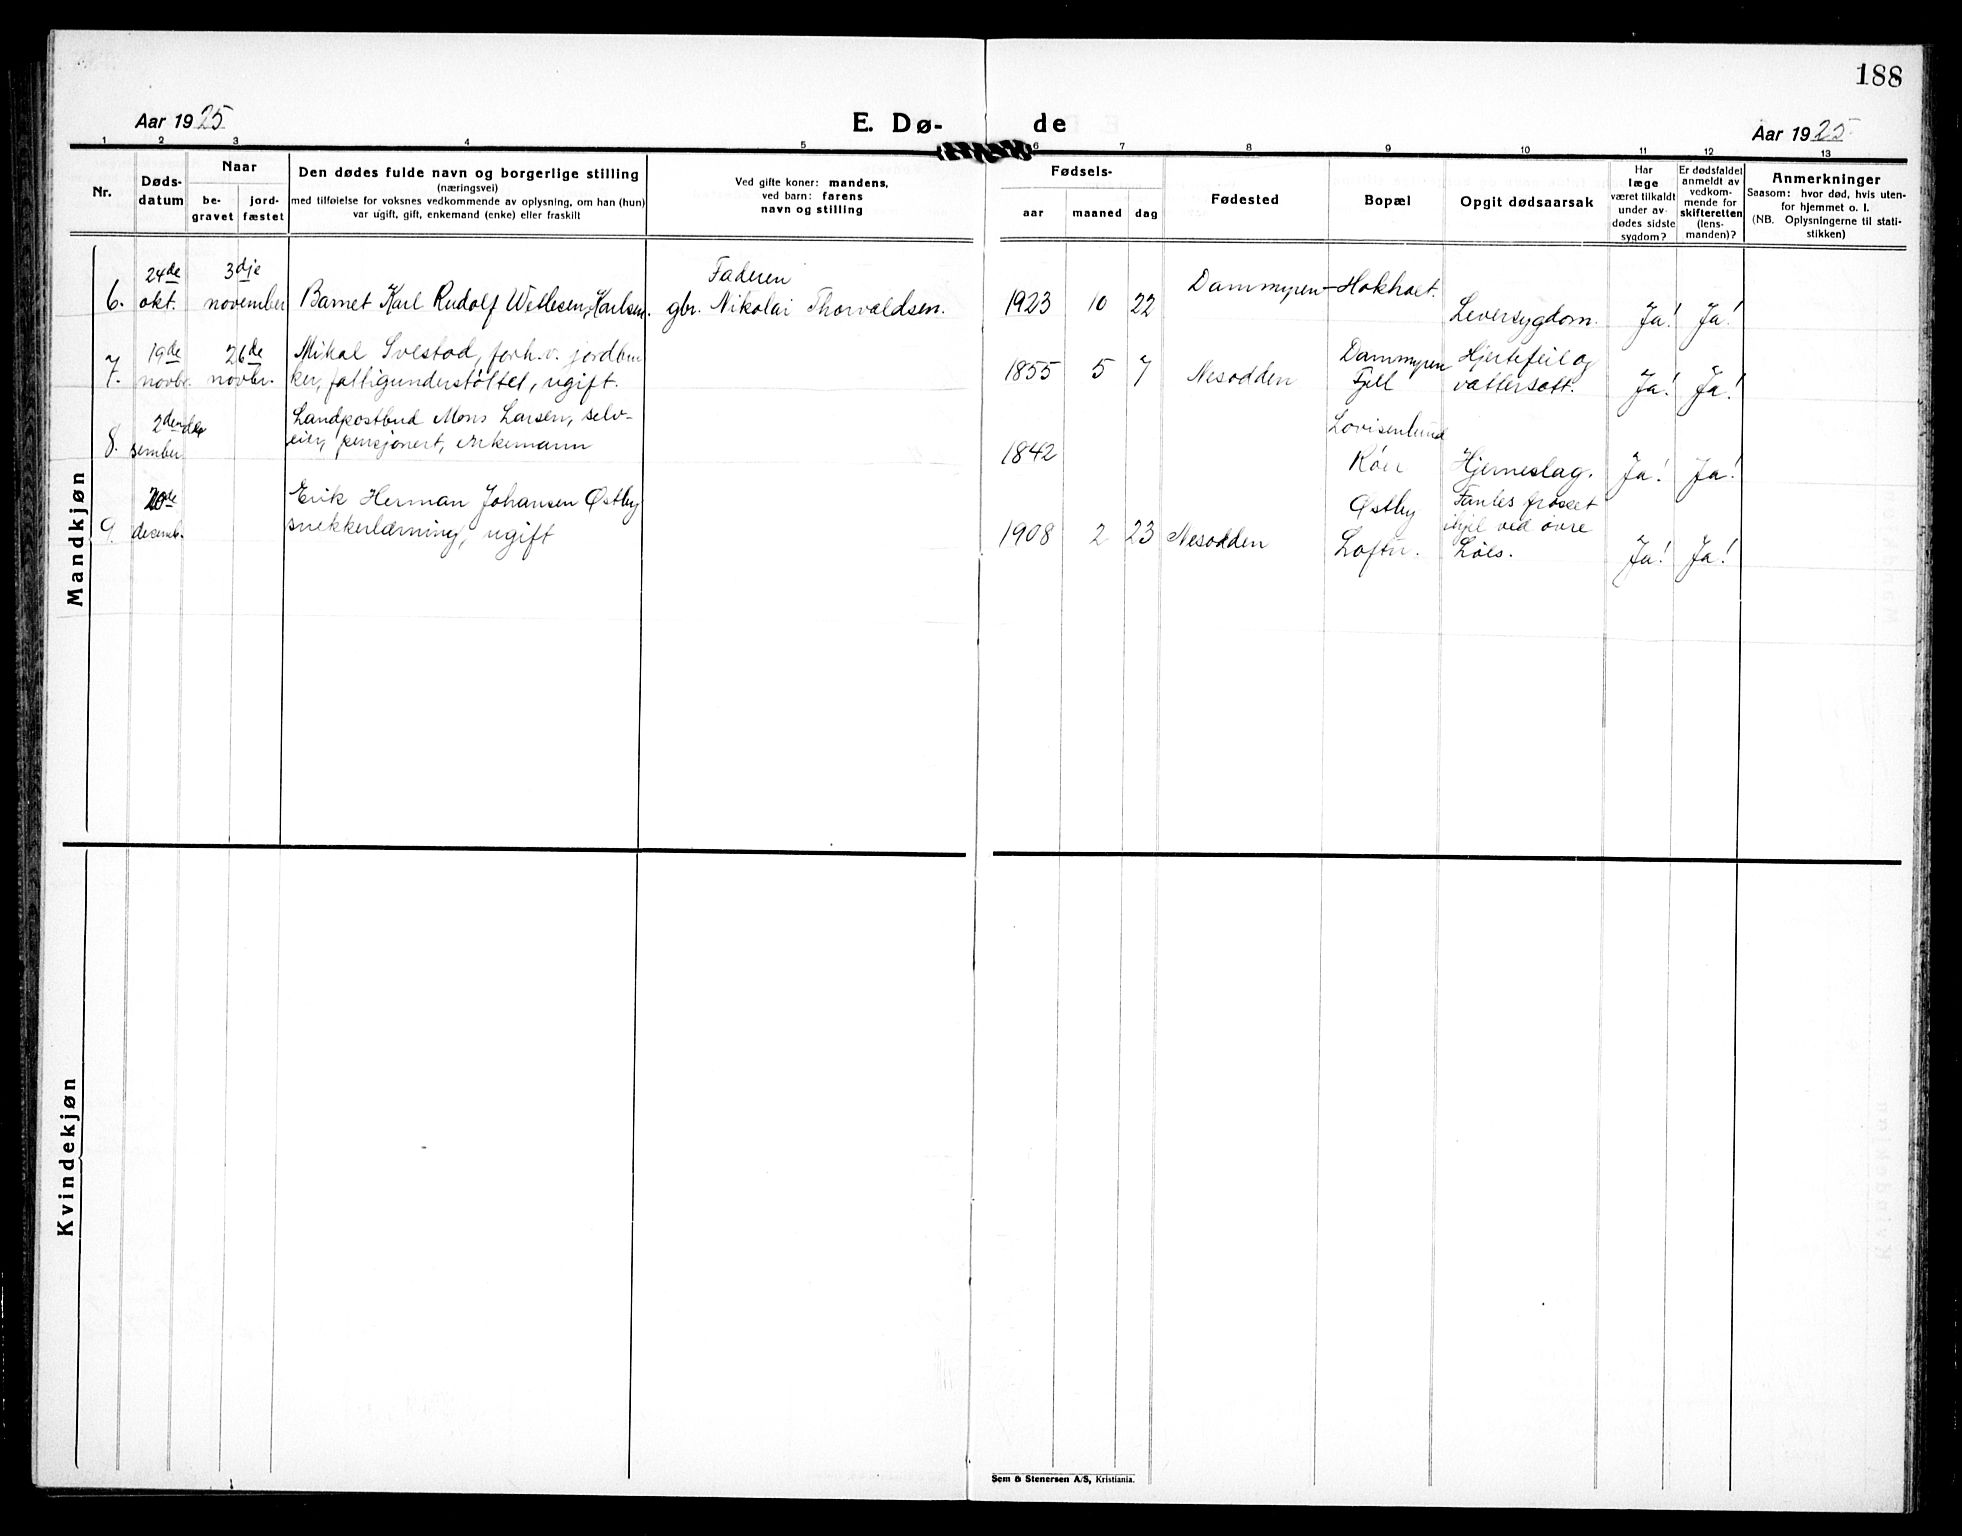 188
Aar 1925
E. Dø-
de
Aar 1925
1 2 3 4 5 6 7 8 9 10 11 12 13
Nr.
Døds-
datum
Naar
be-
gravet
jord-
fæstet
Den dødes fulde navn og borgerlige stilling
(næringsvei)
med tilføielse for voksnes vedkommende av oplysning, om han (hun)
var ugift, gift, enkemand (enke) eller fraskilt
Ved gifte koner: mandens,
ved barn: farens
navn og stilling
Fødsels-
aar
maaned
dag
Fødested
Bopæl
Opgit dødsaarsak
Har
læge
været tilkaldt
under av-
dødes sidste
sygdom?
Er dødsfaldet
anmeldt av
vedkom-
mende for
skifteretten
(lens-
manden)?
Anmerkninger
Saasom: hvor død, hvis uten-
for hjemmet o. l.
(NB. Oplysningerne til stati-
stikken)
Mandkjøn
24de 3dje Faderen Dammyren - Hokholt.
6. okt. november Barnet Karl Rudolf Wetlesen Karlsen. gbr. Nikolai Thorvaldsen. 1923 10 22 Leversygdom. Ja! Ja!
19de 26de Mikal Svestad, forh.v. jordbru Dammyren Hjertefeil og
7. novbr. novbr. ker, fattigunderstøttet, ugift. 1855 5 7 Nesodden Fjell vattersott. Ja! Ja!
2den de Landpostbud Mons Larsen, selv- Lovisenlund
8. sember eier, pensjonert, enkemann 1842 Røer Hjerneslag. Ja! Ja!
20de Erik Herman Johansen Østby Østby Fantes frosset
9. decemb. snekkerlærning, ugift 1908 2 23 Nesodden Loftu. ihjel ved øvre
Løes. Ja! Ja!
Kvindekjøn
Sem & Stenersen A/S, Kristiania.